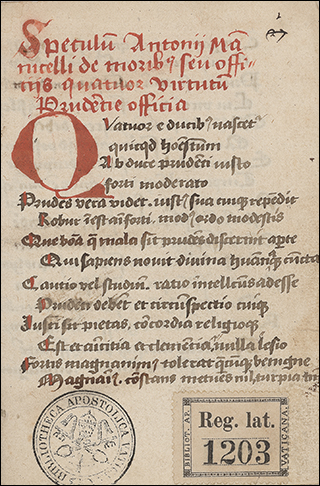 Speculũ Antonij Mã
nicelli de moribꝰ seu offi-
tijs quatuor virtutũ
Prudentie officia
Qvatuor e ducibꝰ nascetᷣ
quicqd hoestum
Ab duce prudenti iusto
forti moderato
Prudẽs vera videt. iustꝰ sua cuiqꝫ repẽdit
Robur inest aĩ forti. modꝰ ordo modestis
Que bõa q̃ mala sint prudẽs discernit apte
Qui sapiens nouit diuina hũanaqꝫ cũcta
Cautio vel studium. ratio intellectus adesse
Prudenti debet et circũspectio cuiqꝫ
Iusticie sit pietas, cõcordia religioqꝫ
Est et amicitia et clementia, nulla lesio
Fortis magnanimꝰ tolerat queqꝫ benigne
Magnanimꝰ. cõstans metuẽs nil, turpia
BIBLIOTHECA APOSTOLICA VATICANA
BIBLIOT. AP. VATICANA
Reg. lat.
1203